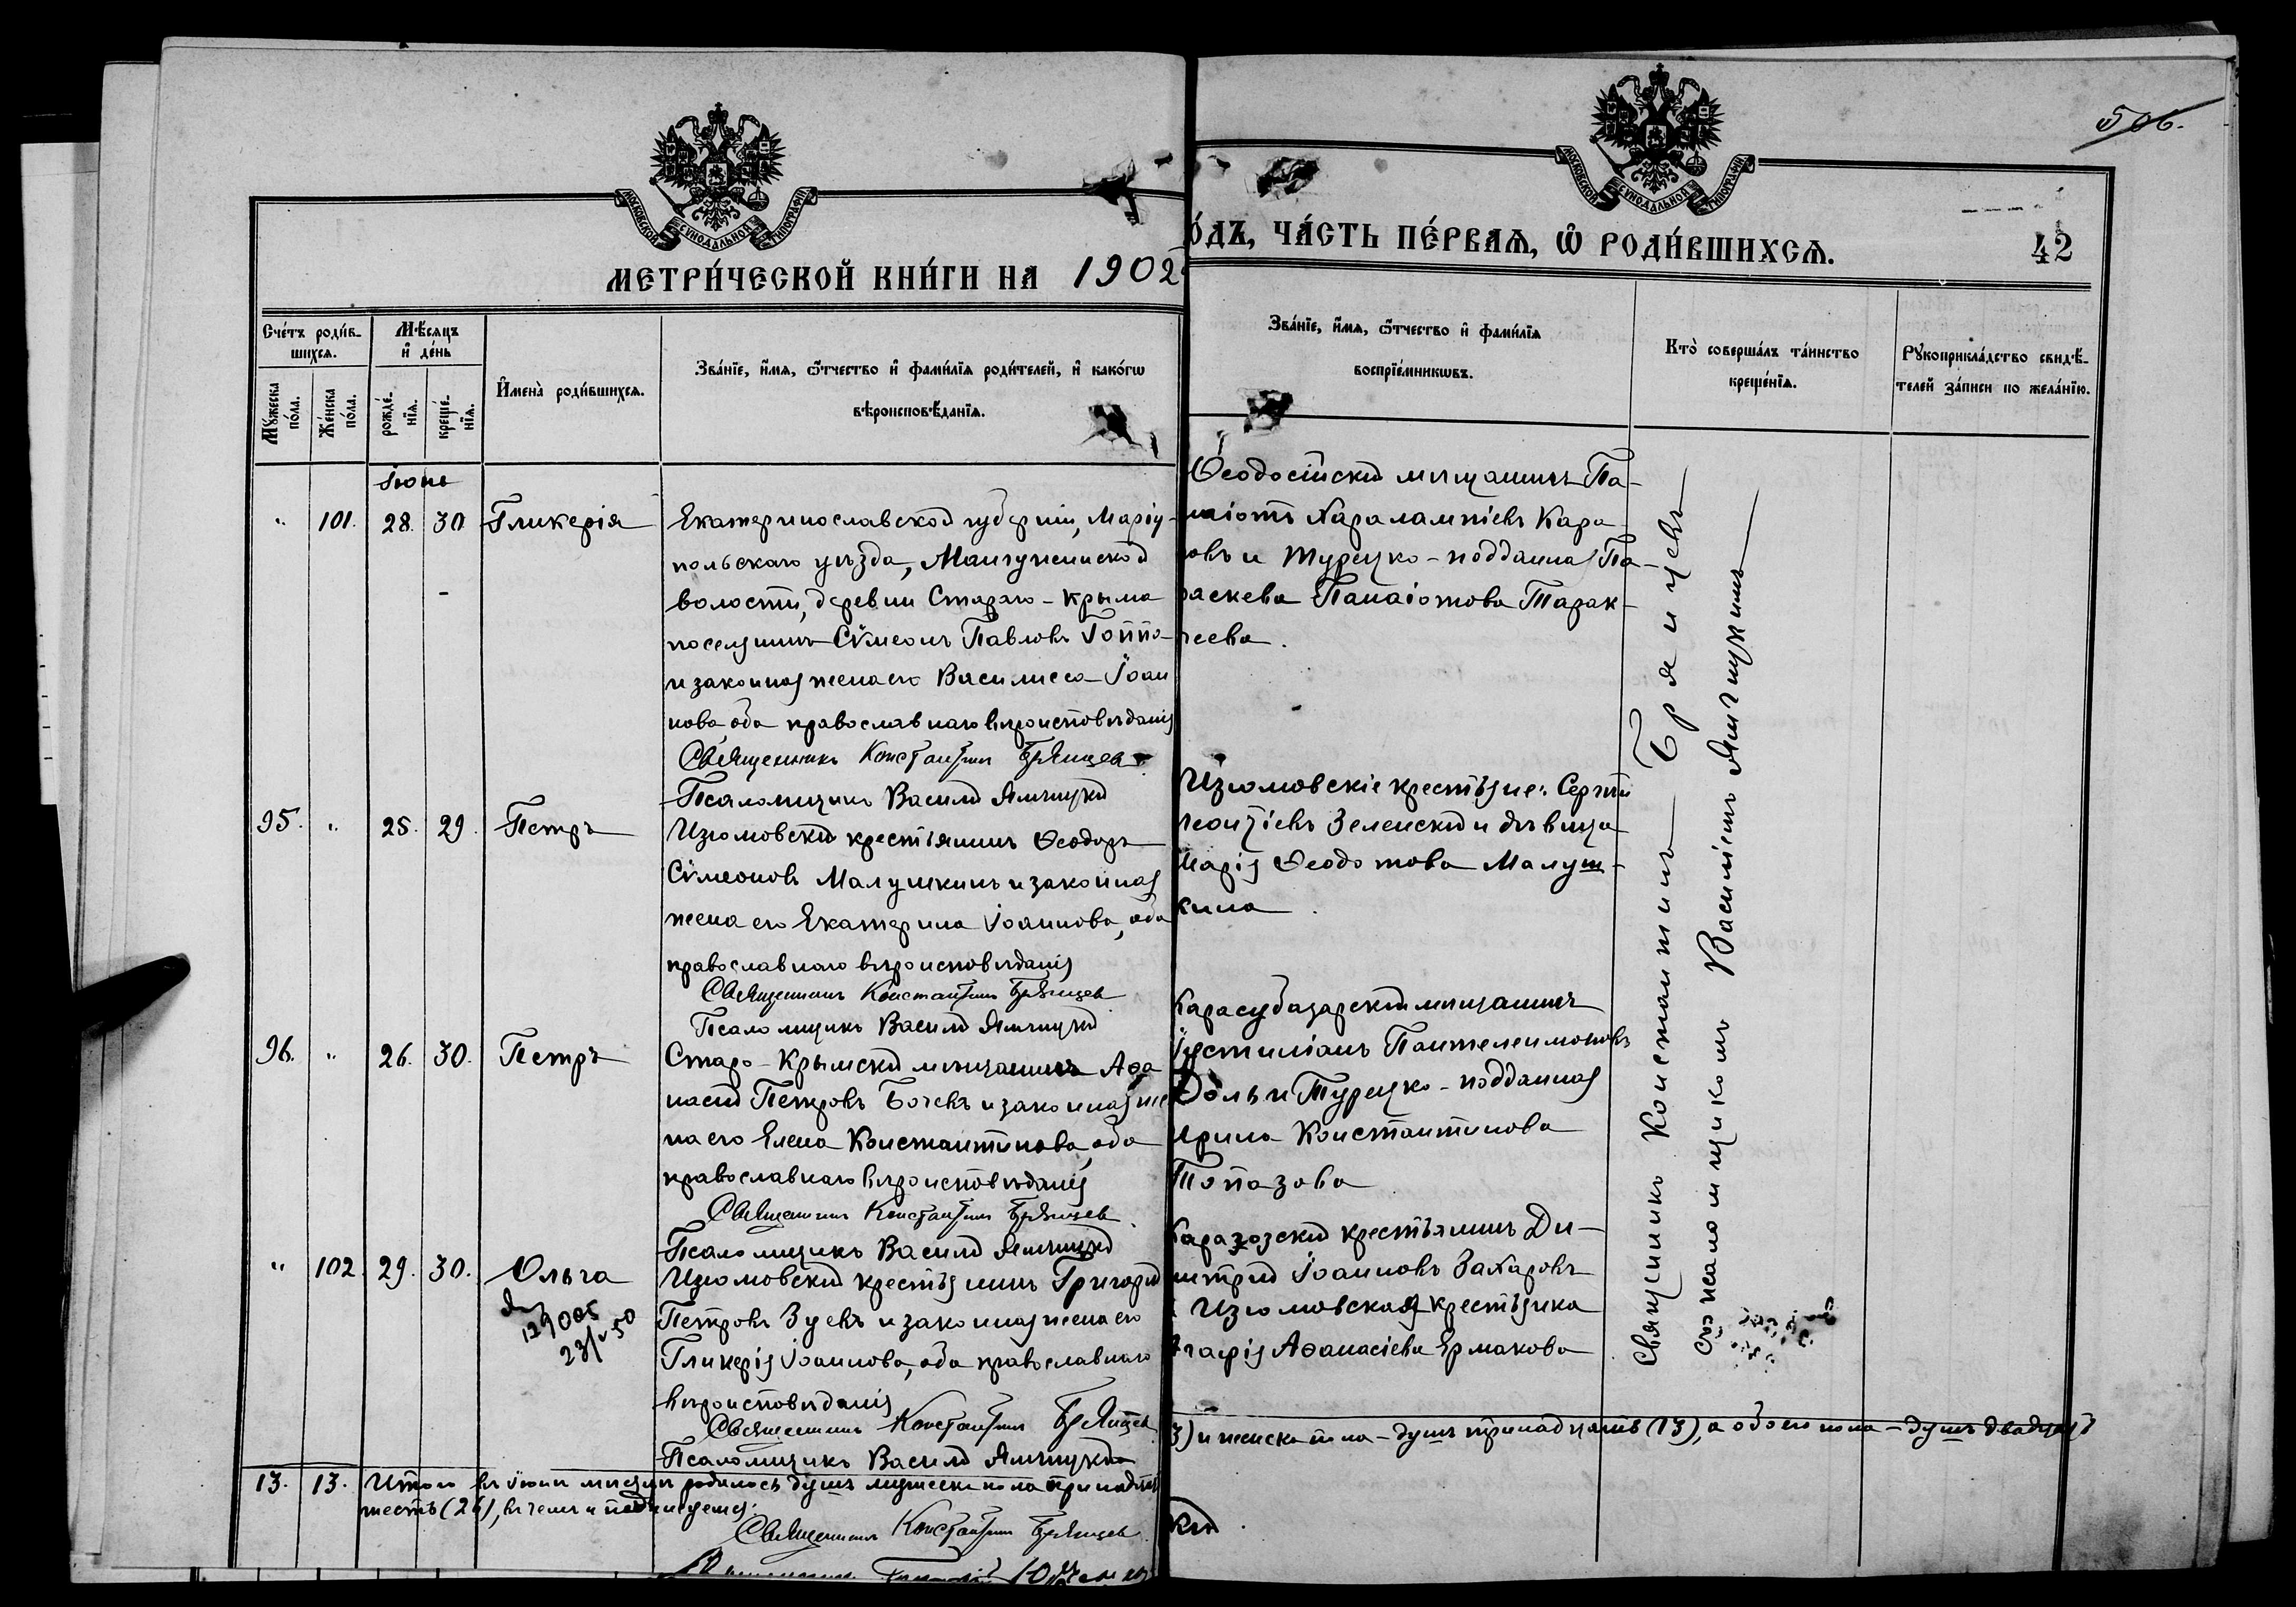 506.
МОСКОВСКОЙ СѴНОДАЛЬНОЙ ТИПОГРАФІИ
МОСКОВСКОЙ СѴНОДАЛЬНОЙ ТИПОГРАФІИ
МЕТРИ́ЧЕСКОЙ КНИ́ГИ НА 1902
ОДЪ, ЧА́СТЬ ПЕ́РВАѦ, Ѿ РОДИ́ВШИХСѦ.
42
Сче́тъ роди́в-
шихсѧ.
Мꙋ́жеска по́ла.
Же́нска по́ла.
Мѣ́сѧцъ
и҆ де́нь
рожде́-
нїѧ.
креще́-
нїѧ.
И҆мена̀ роди́вшихсѧ.
Зва́нїе, и҆́мѧ, ѻ҆́тчество и҆ фами́лїѧ роди́телей, и҆ како́гѡ
вѣроисповѣ́данїѧ.
Зва́нїе, и҆́мѧ, ѻ҆́тчество и҆ фами́лїѧ
воспрїе́мникѡвъ.
Кто̀ соверша́лъ та́инство
креще́нїѧ.
Рꙋкоприкла́дство свидѣ́-
телей за́писи по жела́нїю.
Іюнь
" 101. 28. 30. Гликерія
Екатеринославской губерніи, Маріу-
польскаго уѣзда, Мангушской
волости, деревни Стараго-Крыма
поселянинъ Сѵмеонъ Павловъ Топпо
и законная жена его Василисса Іоан
нова, оба православнаго вѣроисповѣданія
Священникъ Константинъ Брянцевъ
Псаломщикъ Василій Ямчицкій
Ѳеодосійскій мѣщанинъ Па-
наіотъ Харалампіевъ Кара-
овъ и Турецко-подданная Па-
раскева Панаіотова Тарак-
чеева.
95. " 25. 29. Петръ
Изюмовскій крестьянинъ Ѳеодоръ
Сѵмеоновъ Малушкинъ и законная
жена его Екатерина Іоаннова, оба
православнаго вѣроисповѣданія
Священникъ Константинъ Брянцевъ
Псаломщикъ Василій Ямчицкій
Изюмовскіе крестьяне: Сергій
Леонтіевъ Зеленскій и дѣвица
Марія Ѳеодотова Малуш-
кина.
96. " 26. 30. Петръ
Старо-Крымскій мѣщанинъ Аѳа
насій Петровъ Бочевъ и законная же
на его Елена Константинова, оба
православнаго вѣроисповѣданія
Священникъ Константинъ Брянцевъ
Псаломщикъ Василій Ямчицкій
Карасубазарскій мѣщанинъ
Іустиніанъ Пантелеимоновъ
и Турецко-подданная
Ирина Константинова
Топазова
" 102. 29. 30. Ольга
Изюмовскій крестьянинъ Григорій
Петровъ Зуевъ и законная жена его
Гликерія Іоаннова, оба православнаго
вѣроисповѣданія
Священникъ Константинъ Брянцевъ
Псаломщикъ Василій Ямчицкій
Каразозскій крестьянинъ Ди-
митрій Іоанновъ Захаровъ
и Изюмовская крестьянка
Агафія Аѳанасіева Ермакова
Священникъ Константинъ Брянцевъ
съ псаломщикомъ Василіемъ Ямчицкимъ
13. 13. Итого въ Іюнѣ мѣсяцѣ родилось душъ мужеска пола тринадцать
3) и женска пола - душъ тринадцать (13), а обоего пола - душъ двадцать
шесть (26), въ чемъ и подписуемся:
Священникъ Константинъ Брянцевъ
кій.